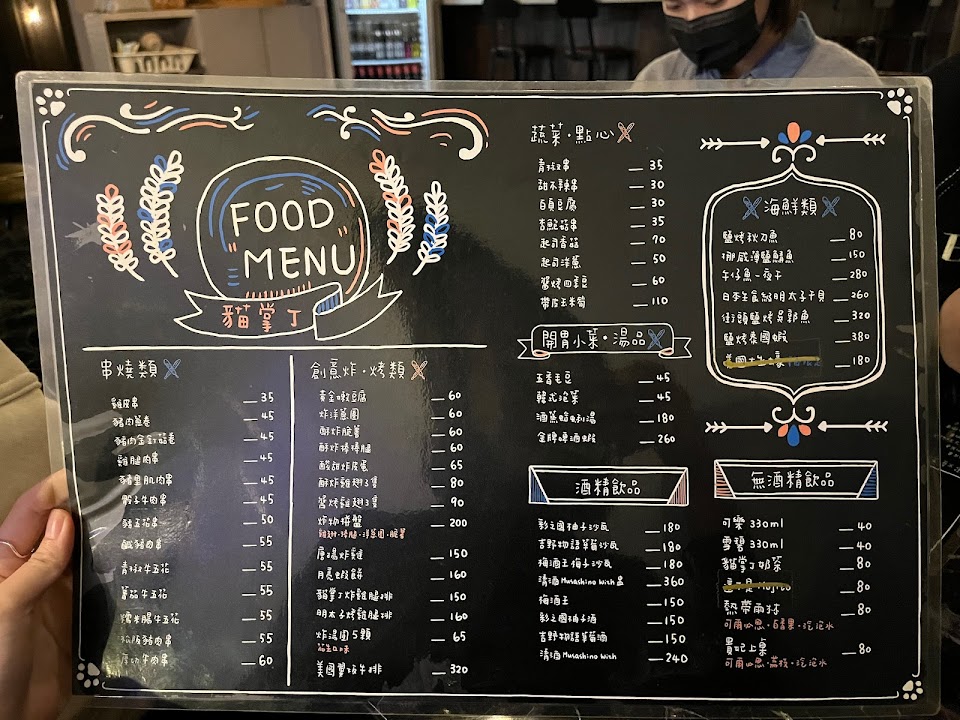 FOOD
MENU
貓掌丁
串燒類
雞皮串 35
豬肉蔥卷 45
豬肉金針菇卷 45
雞腿肉串 45
豬里肌肉串 45
骰子牛肉串 45
豬五花串 50
鹹豬肉串 55
青椒牛五花 55
蔥牛五花 55
糯米腸牛五花 55
松阪豬肉串 55
牛肉串 60
創意炸・烤類
黃金嫩豆腐 60
炸洋蔥圈 60
酥炸脆薯 60
酥炸棒棒腿 60
酸甜炸皮蛋 65
酥炸雞翅3隻 80
醬烤雞翅3隻 90
炸物拼盤 200
雞翅・棒腿・洋蔥圈・脆薯
唐揚炸雞 150
月亮蝦餅 160
貓掌丁炸雞腿排 150
明太子烤雞腿排 160
炸湯圓5顆 65
美國翼板牛排 320
蔬菜・點心
青椒串 35
甜不辣串 30
百頁豆腐 30
杏鮑菇串 35
起司香菇 70
起司洋蔥 50
醬烤四季豆 60
帶皮玉米筍 110
開胃小菜・湯品
五香毛豆 45
韓式泡菜 45
酒蒸蛤蜊湯 180
金牌啤酒蝦 260
酒精飲品
彩之國柚子沙瓦 180
吉野物語草莓沙瓦 180
梅酒王梅子沙瓦 180
清酒Musashino Wish 360
梅酒王 150
彩之國柚子酒 150
吉野物語草莓酒 150
清酒Musashino Wish 240
海鮮類
鹽烤秋刀魚 80
挪威薄鹽鯖魚 150
午仔魚一夜干 280
日本生食級明太子干貝 260
街頭鹽烤吳郭魚 320
鹽烤泰國蝦 380
180
無酒精飲品
可樂 330ml 40
雪碧 330ml 40
貓掌丁奶茶 80
Mojito 80
熱帶雨林 80
可爾必思・百香果・氣泡水
貴妃上桌 80
可爾必思・荔枝・氣泡水